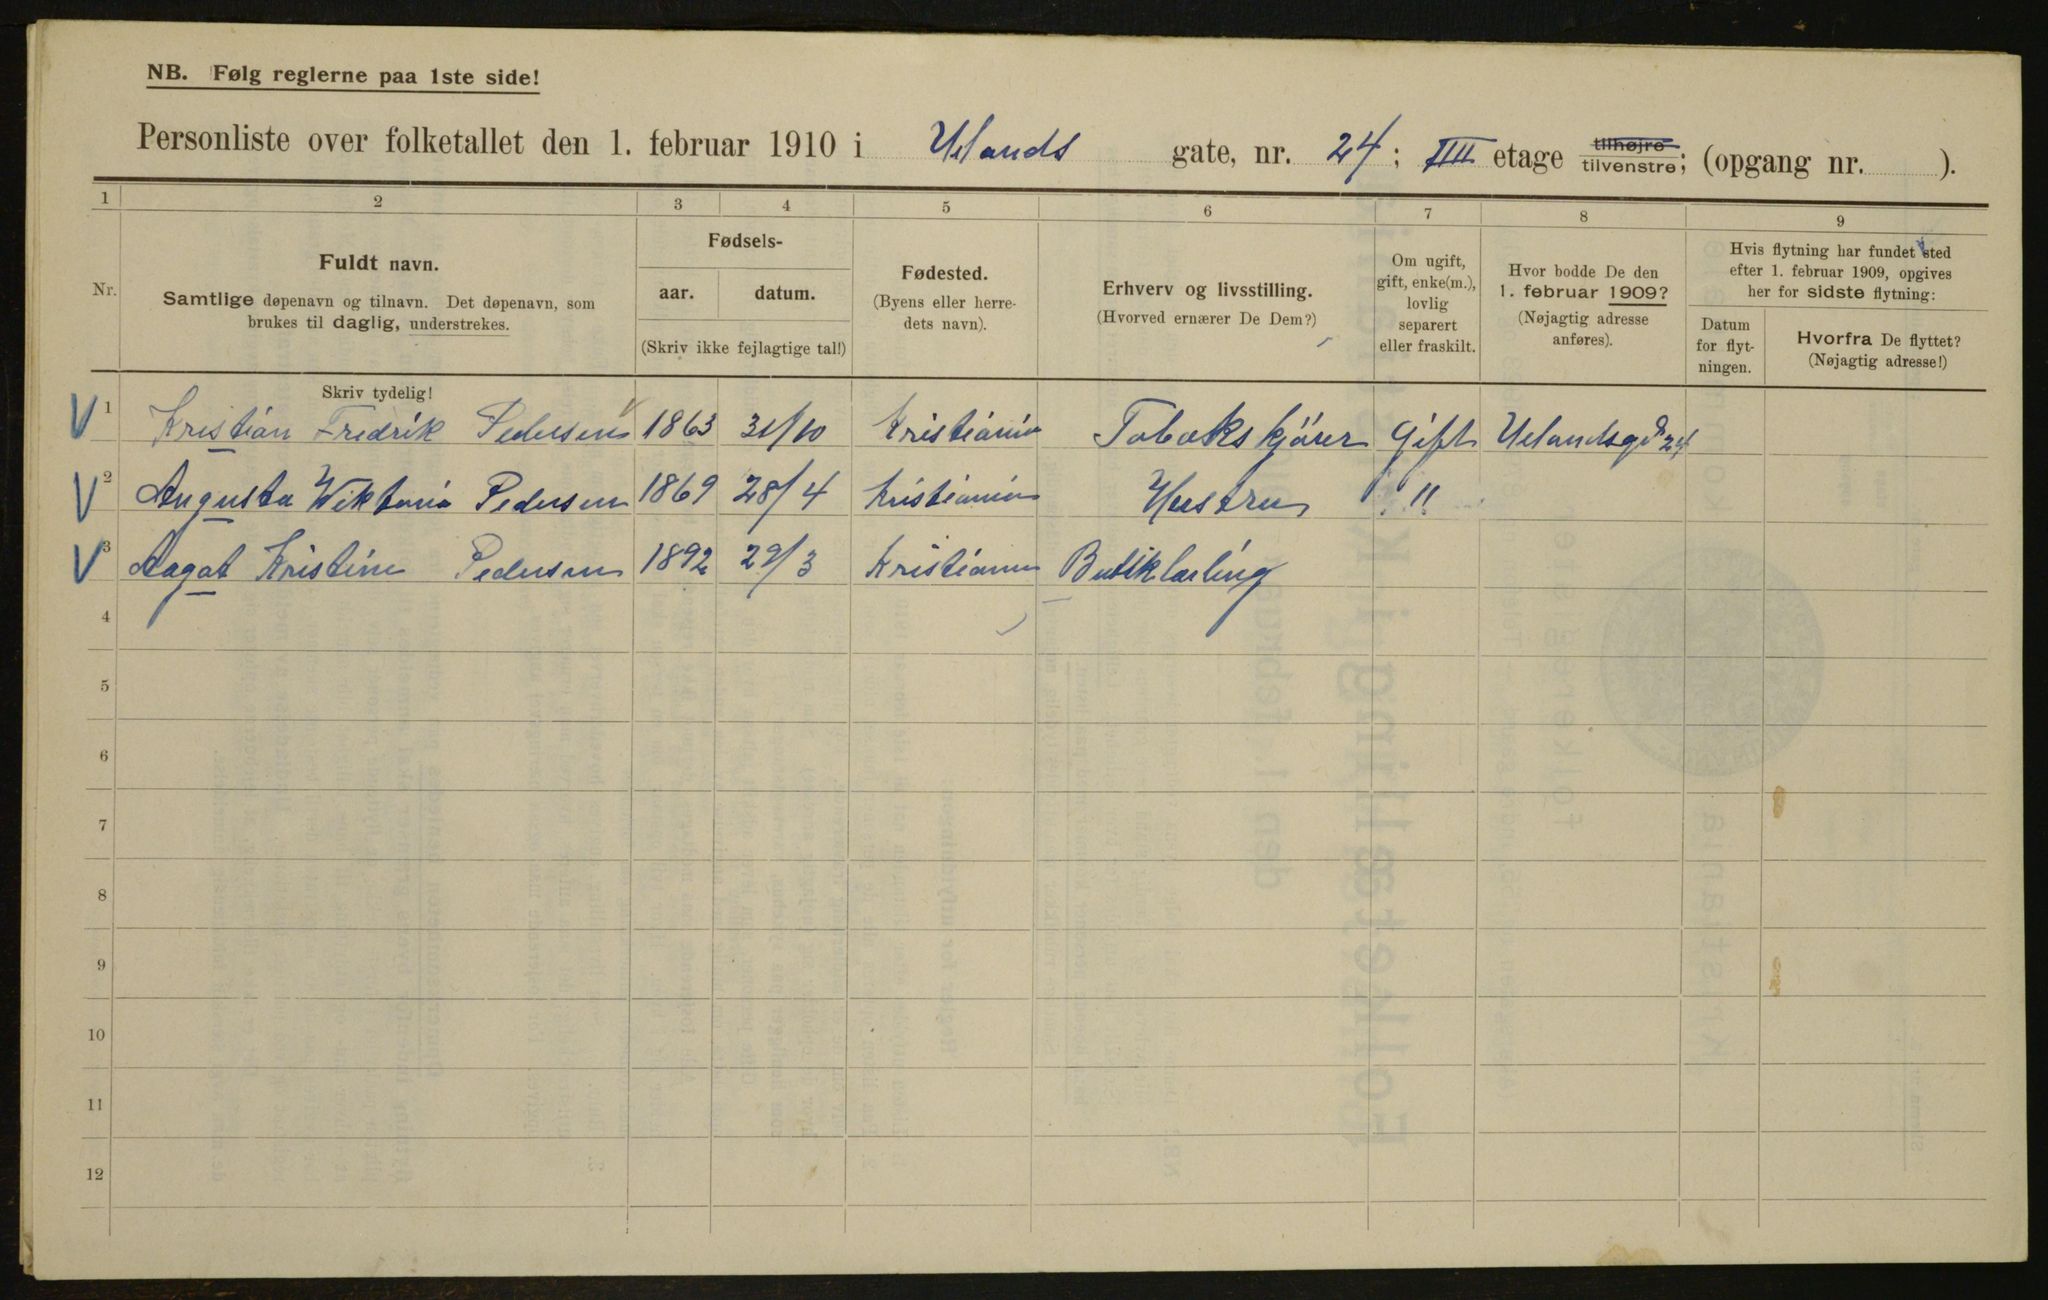 NB. Følg reglerne paa 1ste side!
Personliste over folketallet den 1. februar 1910 i Uelands gate, nr. 24; IIII etage tilhøjre tilvenstre; (opgang nr. ).
1 2 3 4 5 6 7 8 9
Nr. Fuldt navn. Samtlige døpenavn og tilnavn. Det døpenavn, som brukes til daglig, understrekes.
Fødsels-
aar. datum.
(Skriv ikke fejlagtige tal!)
Fødested. (Byens eller herredets navn).
Erhverv og livsstilling. (Hvorved ernærer De Dem?)
Om ugift, gift, enke(m.), lovlig separert eller fraskilt.
Hvor bodde De den 1. februar 1909? (Nøjagtig adresse anføres).
Hvis flytning har fundet sted efter 1. februar 1909, opgives her for sidste flytning:
Datum for flytningen.
Hvorfra De flyttet? (Nøjagtig adresse!)
Skriv tydelig!
V 1 Kristian Fredrik Pedersen 1863 31/10 Kristiania Tobakskjører Gift Uelandsgd 24
V 2 Augusta Wiktoria Pedersen 1869 28/4 Kristiania Hustru "
V 3 Aagot Kristine Pedersen 1892 29/3 Kristiania Butiklærling
4
5
6
7
8
9
10
11
12